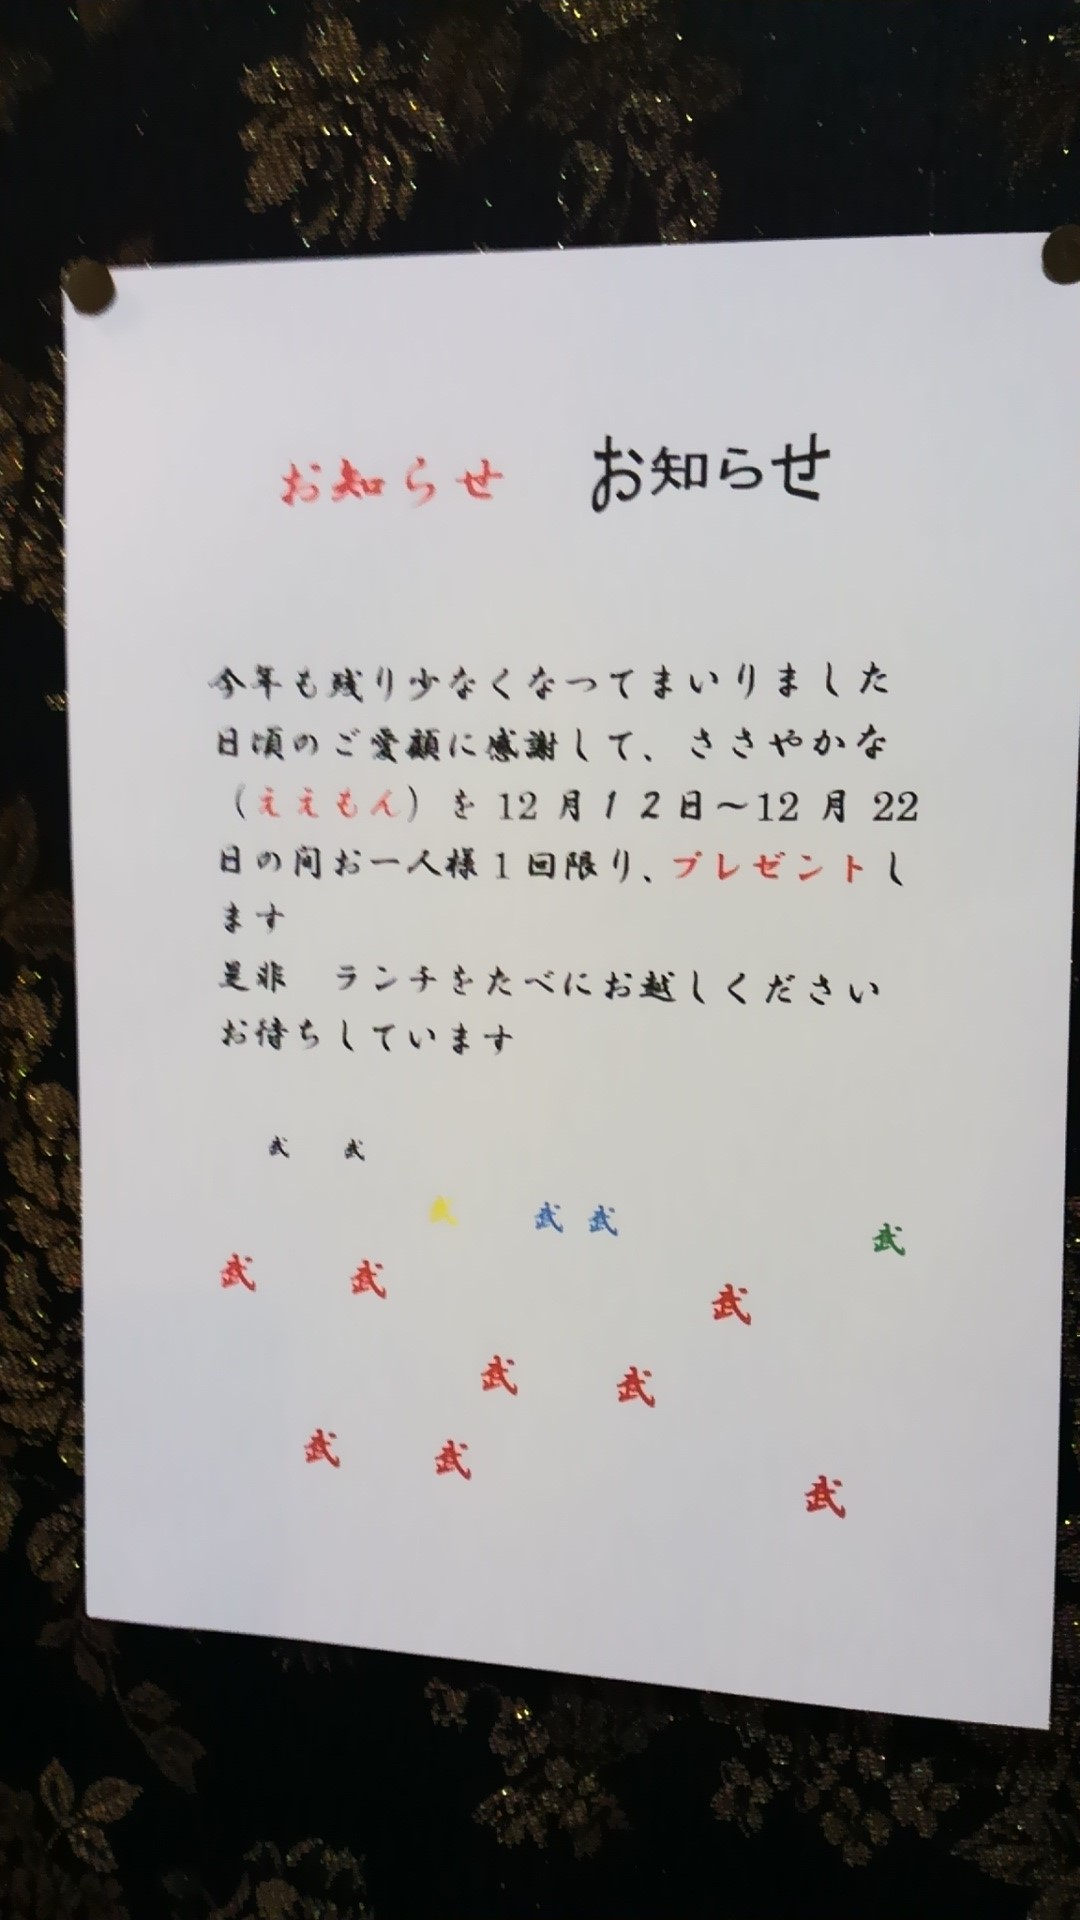 お知らせ　お知らせ
今年も残り少なくなってまいりました
日頃のご愛顧に感謝して、ささやかな
（ええもん）を 12 月１２日～12 月 22
日の間お一人様１回限り、プレゼントし
ます
是非　ランチをたべにお越しください
お待ちしています
武　武
武　武 武　武
武　武　武
武　武
武　武　武